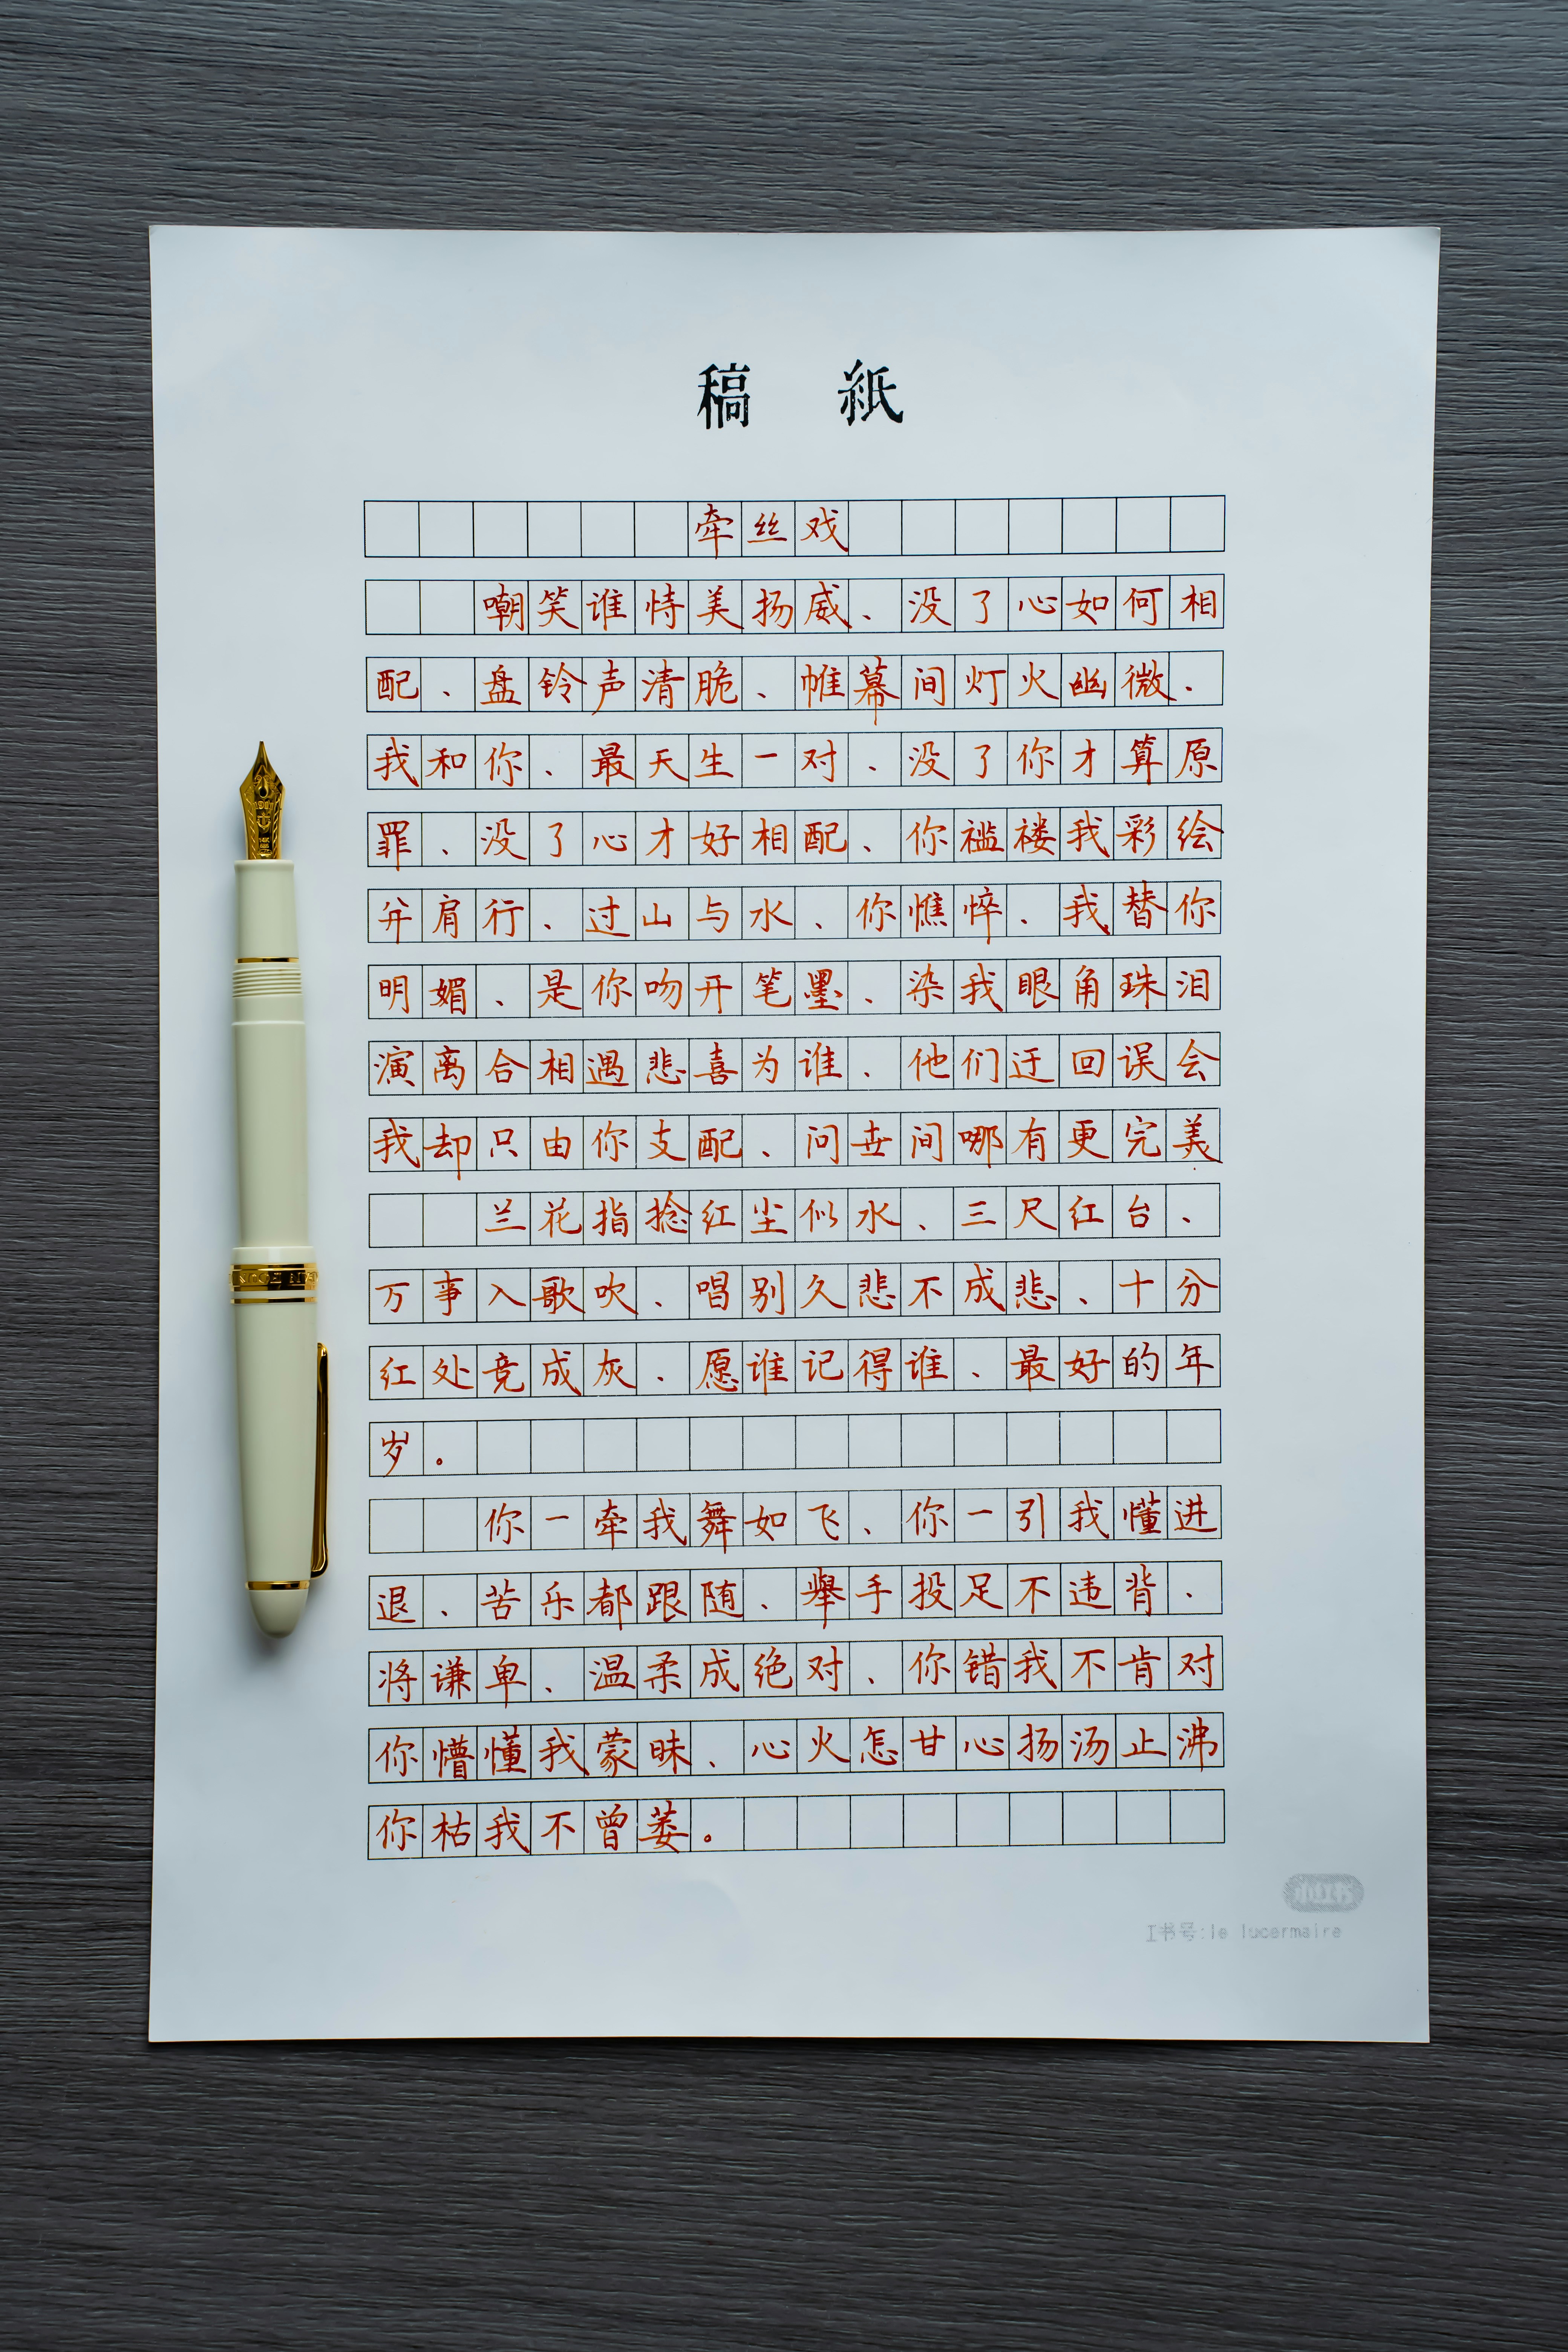 稿 紙
牵丝戏
嘲笑谁恃美扬威、没了心如何相
配、盘铃声清脆、帷幕间灯火幽微、
我和你、最天生一对、没了你才算原
罪、没了心才好相配、你褴褛我彩绘
并肩行、过山与水、你憔悴、我替你
明媚、是你吻开笔墨、染我眼角珠泪
演离合相遇悲喜为谁、他们迂回误会
我却只由你支配、问世间哪有更完美
兰花指捻红尘似水、三尺红台、
万事入歌吹、唱别久悲不成悲、十分
红处竟成灰、愿谁记得谁、最好的年
岁。
你一牵我舞如飞、你一引我懂进
退、苦乐都跟随、举手投足不违背、
将谦卑、温柔成绝对、你错我不肯对
你懵懂我蒙昧、心火怎甘心扬汤止沸
你枯我不曾萎。
书号:le lucermaire